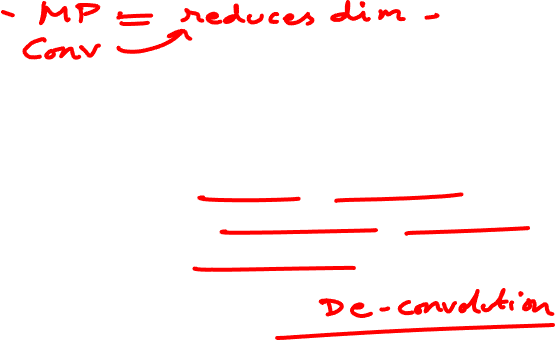 - MP = reduces dim -
Conv
De-convolution